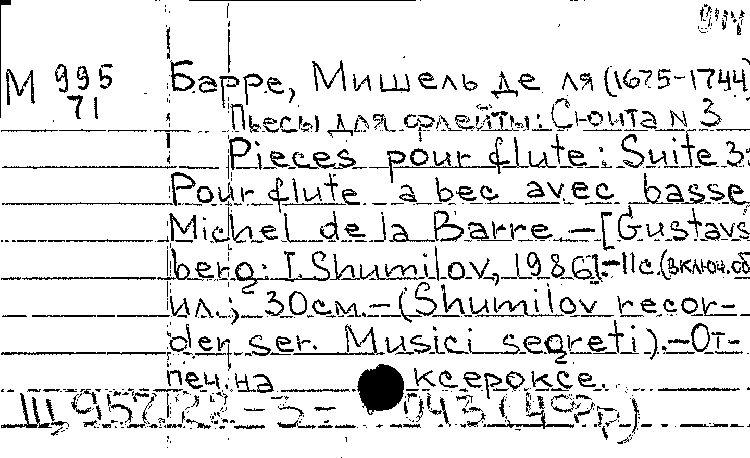 944
М 995
71
Барре, Мишель де ля (1675-1744)
Пьесы для флейты: Сюита N 3
Pieces pour flute: Suite 3:
Pour flute a bec avec basse
Michel de la Barre.-[Gustavs
berg: I. Shumilov, 1986].-11c.(включ.об
ил.; 30см.-(Shumilov recor-
der ser. Musici segreti).-От-
печ.на ксероксе.
043 (4ФР)